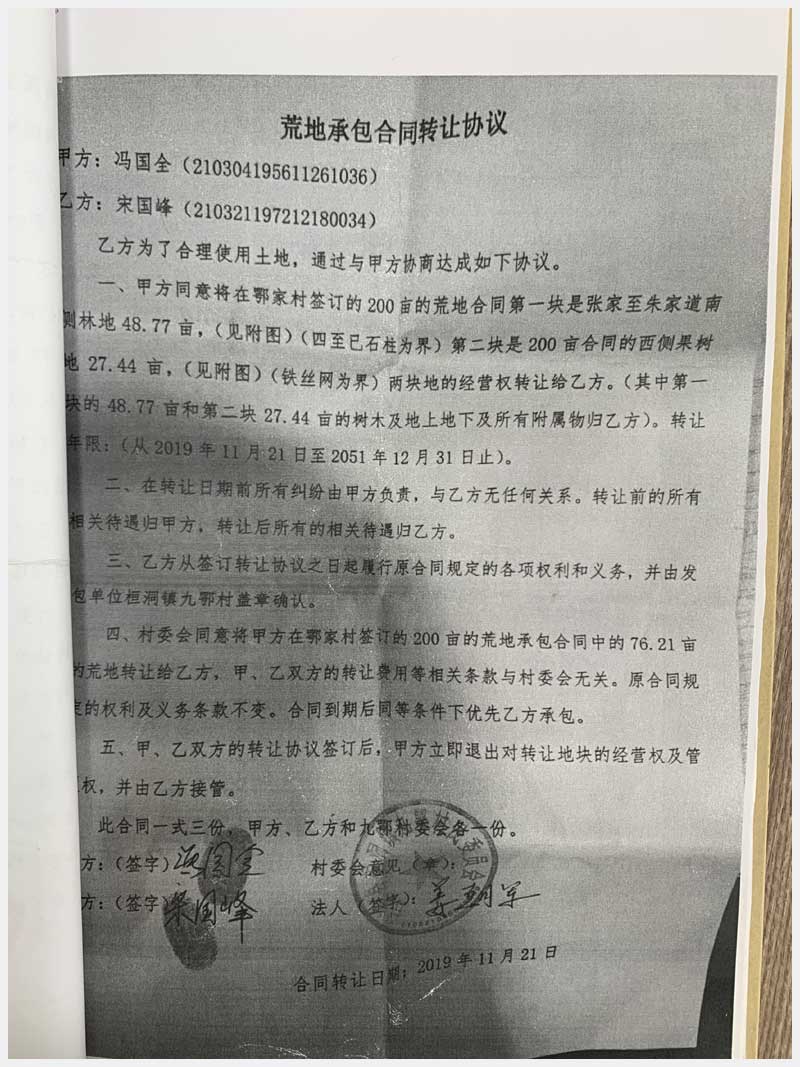 荒地承包合同转让协议
甲方：冯国全（210304195611261036）
乙方：宋国峰（210321197212180034）
乙方为了合理使用土地，通过与甲方协商达成如下协议。
一、甲方同意将在鄂家村签订的200亩的荒地合同第一块是张家至朱家道南
侧林地48.77亩，（见附图）（四至已石柱为界）第二块是200亩合同的西侧果树
地27.44亩，（见附图）（铁丝网为界）两块地的经营权转让给乙方。（其中第一
块的48.77亩和第二块27.44亩的树木及地上地下及所有附属物归乙方）。转让
年限：（从2019年11月21日至2051年12月31日止）。
二、在转让日期前所有纠纷由甲方负责，与乙方无任何关系。转让前的所有
相关待遇归甲方，转让后所有的相关待遇归乙方。
三、乙方从签订转让协议之日起履行原合同规定的各项权利和义务，并由发
包单位桓洞镇九鄂村盖章确认。
四、村委会同意将甲方在鄂家村签订的200亩的荒地承包合同中的76.21亩
的荒地转让给乙方，甲、乙双方的转让费用等相关条款与村委会无关。原合同规
定的权利及义务条款不变。合同到期后同等条件下优先乙方承包。
五、甲、乙双方的转让协议签订后，甲方立即退出对转让地块的经营权及管
权，并由乙方接管。
此合同一式三份，甲方、乙方和九鄂村委会各一份。
方：（签字）冯国全 村委会意见（章）：
方：（签字）宋国峰 法人（签字）：
合同转让日期：2019年11月21日